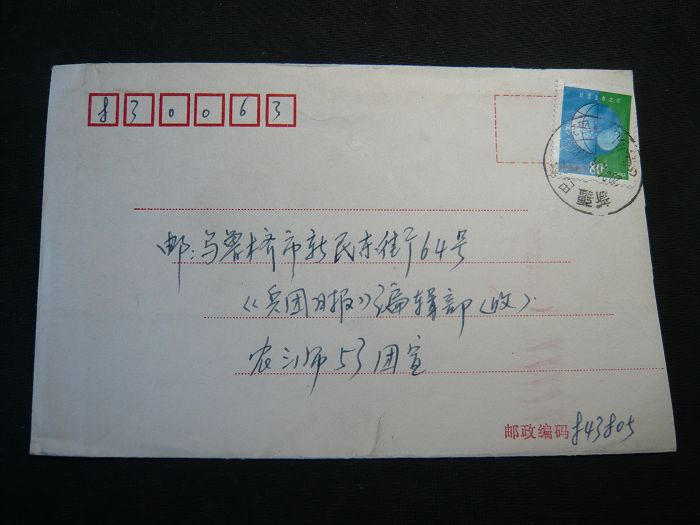 830063
80
新疆
邮:乌鲁木齐市新民东街64号
《兵团日报》编辑部(收)
农二师53团宣
邮政编码 843805